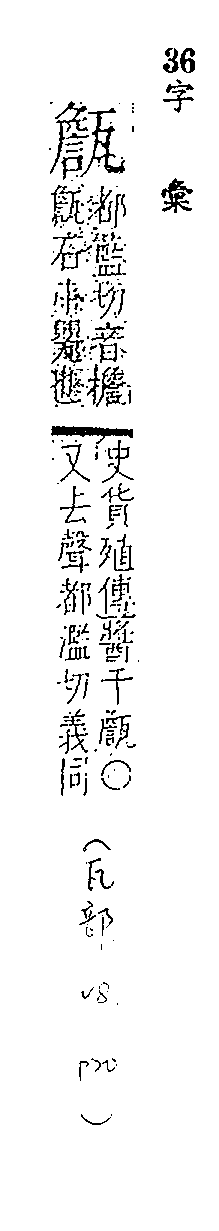 36
字彙
甔
都藍切音擔
甔石小甖也
史貨殖傳醬千甔〇
又去聲都濫切義同
(瓦部 v8. p20)